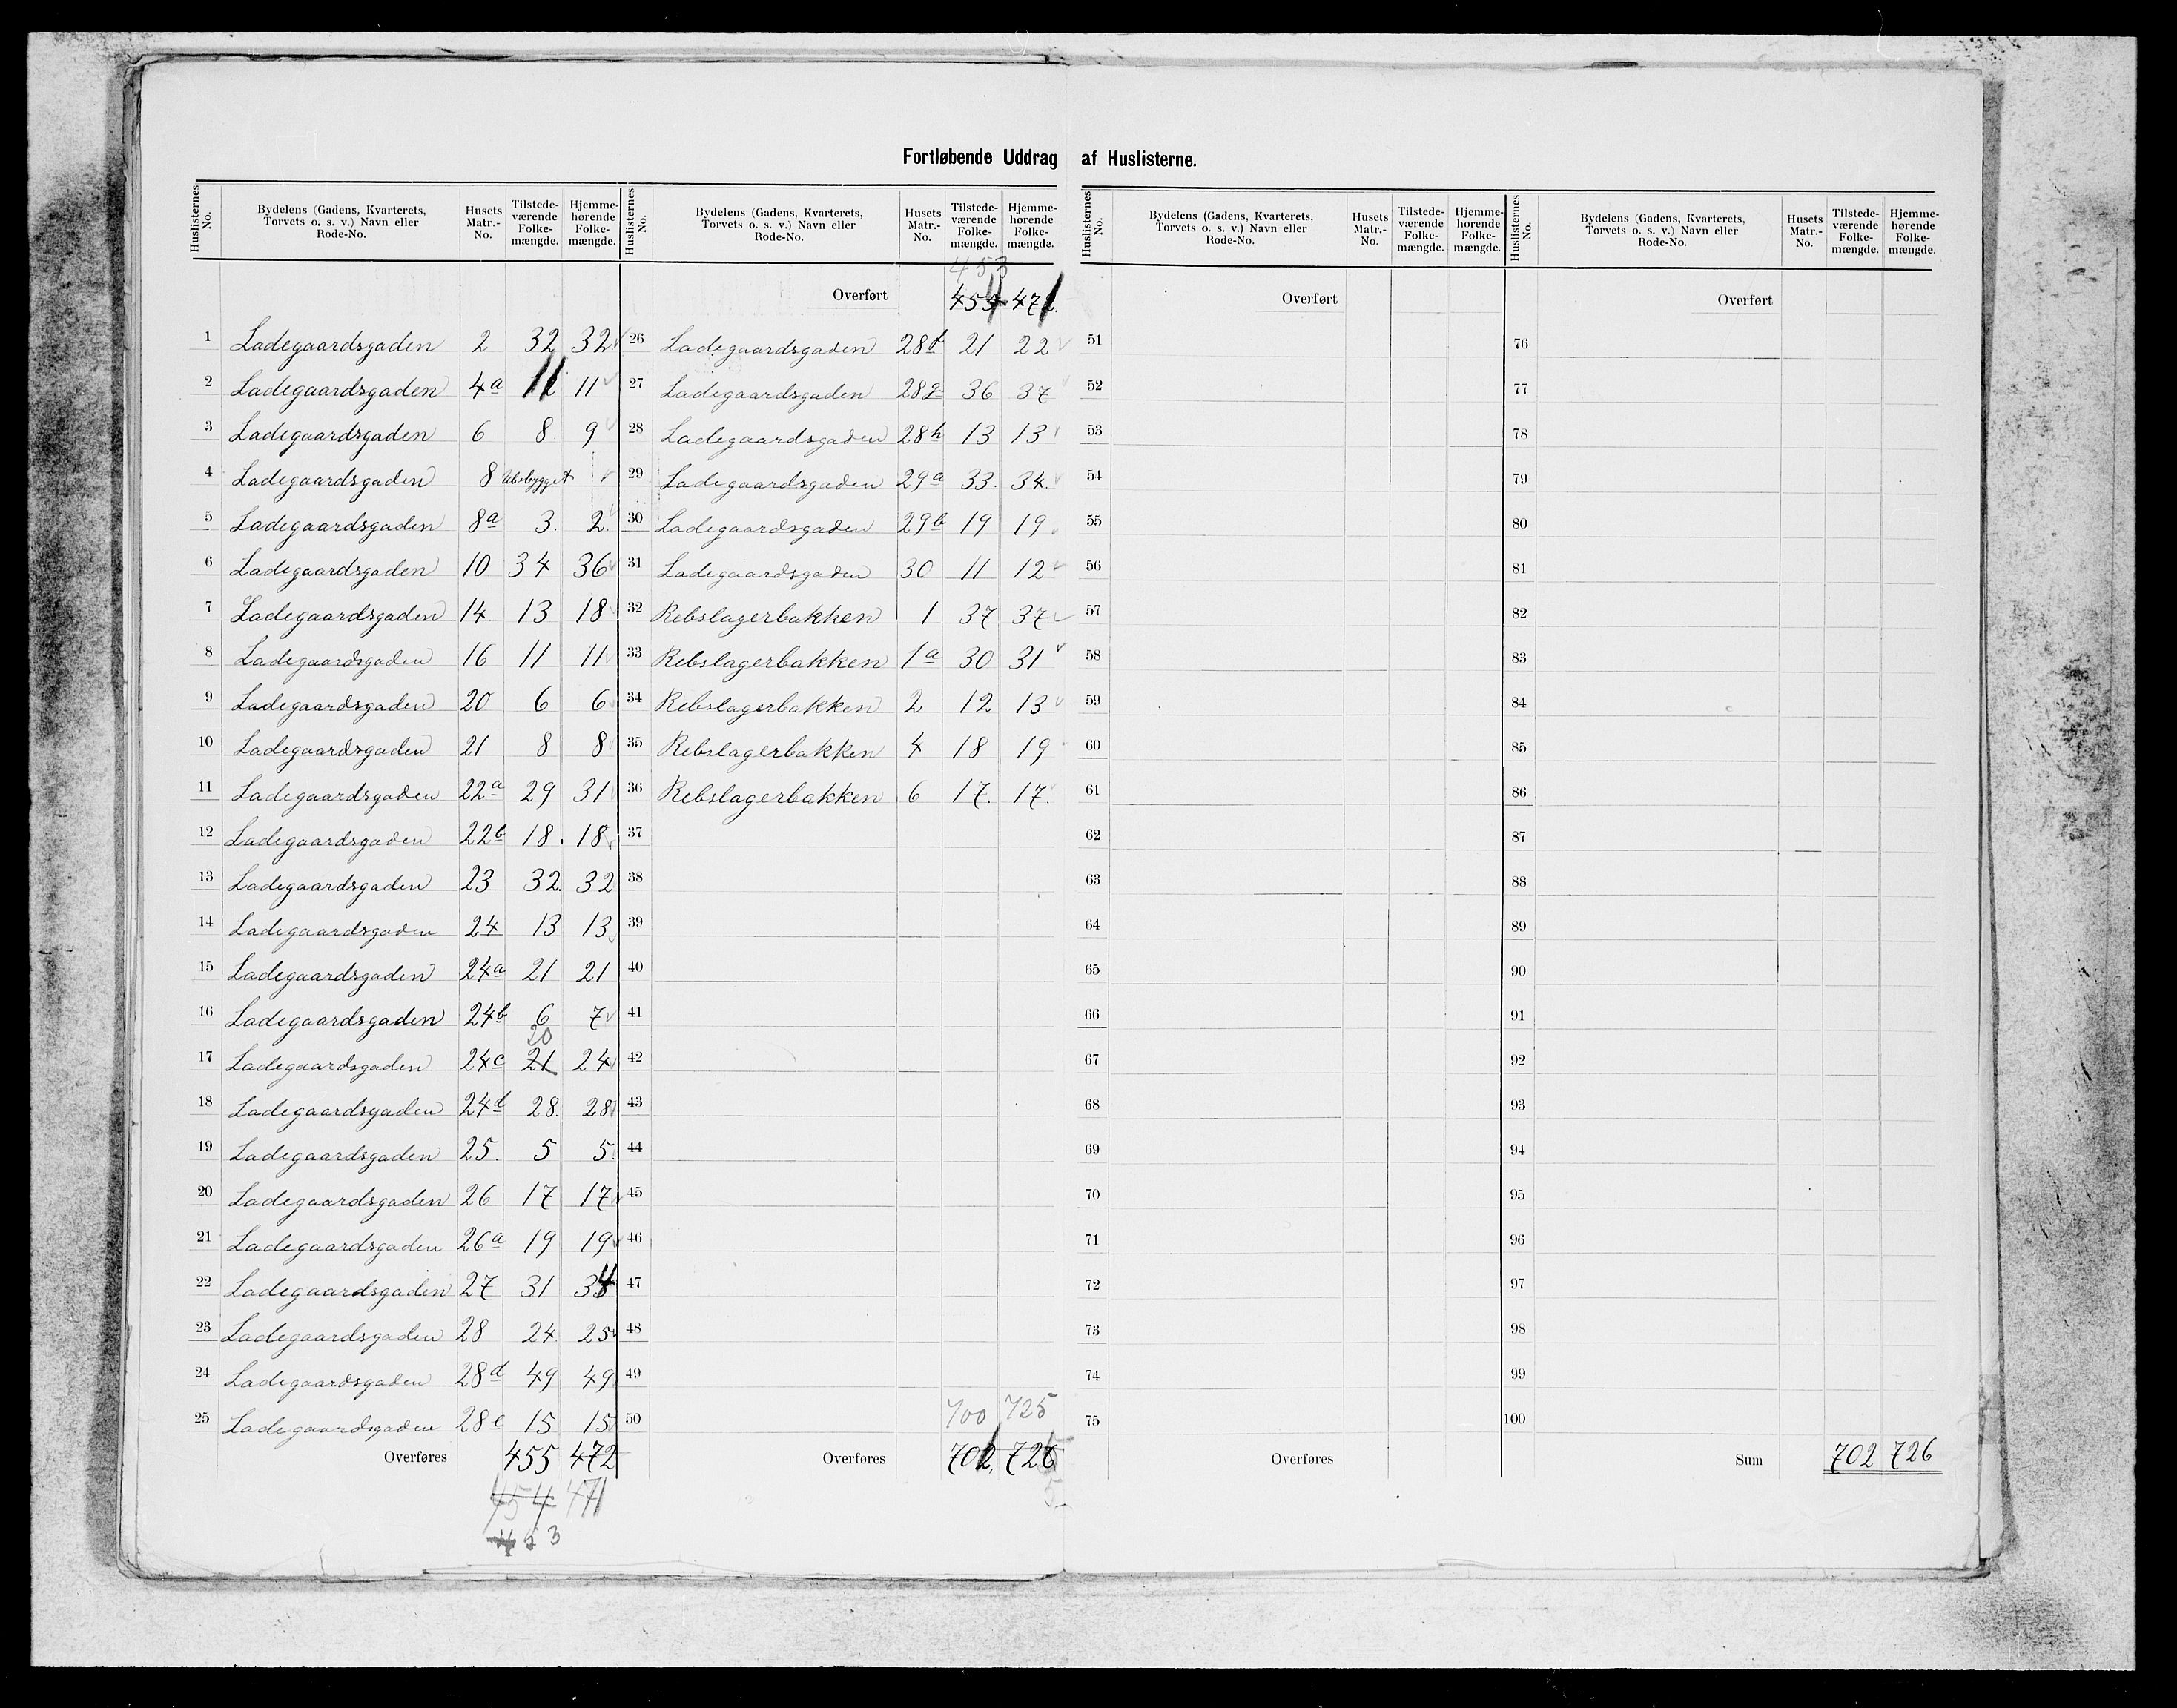 Fortløbende Uddrag af Huslisterne.
Huslisternes No. Bydelens (Gadens, Kvarterets, Torvets o. s. v.) Navn eller Rode-No. Husets Matr.-No. Tilstedeværende Folkemængde. Hjemmehørende Folkemængde.
1 Ladegaardsgaden 2 32 32
2 Ladegaardsgaden 4a 11 11
3 Ladegaardsgaden 6 8 9
4 Ladegaardsgaden 8 Ubebygget
5 Ladegaardsgaden 8a 3. 2.
6 Ladegaardsgaden 10 34 36
7 Ladegaardsgaden 14 13 18
8 Ladegaardsgaden 16 11 11
9 Ladegaardsgaden 20 6 6
10 Ladegaardsgaden 21 8 8
11 Ladegaardsgaden 22a 29 31
12 Ladegaardsgaden 22b 18. 18
13 Ladegaardsgaden 23 32. 32
14 Ladegaardsgaden 24 13 13
15 Ladegaardsgaden 24a 21 21
16 Ladegaardsgaden 24b 6 7
20
17 Ladegaardsgaden 24c 21 24
18 Ladegaardsgaden 24d 28. 28
19 Ladegaardsgaden 25. 5 5.
20 Ladegaardsgaden 26 17 17
21 Ladegaardsgaden 26a 19 19
22 Ladegaardsgaden 27 31 34
23 Ladegaardsgaden 28 24. 25
24 Ladegaardsgaden 28d 49 49
25 Ladegaardsgaden 28e 15 15
Overføres 455 472
454 471
453
Huslisternes No. Bydelens (Gadens, Kvarterets, Torvets o. s. v.) Navn eller Rode-No. Husets Matr.-No. Tilstedeværende Folkemængde. Hjemmehørende Folkemængde.
453
Overført 454 471
26 Ladegaardsgaden 28f 21 22
27 Ladegaardsgaden 28g 36 37
28 Ladegaardsgaden 28h 13 13
29 Ladegaardsgaden 29a 33. 34.
30 Ladegaardsgaden 29b 19 19
31 Ladegaardsgaden 30 11 12
32 Rebslagerbakken 1 37 37
33 Rebslagerbakken 1a 30 31
34 Rebslagerbakken 2 12 13
35 Rebslagerbakken 4 18 19
36 Rebslagerbakken 6 17. 17.
37
38
39
40
41
42
43
44
45
46
47
48
49
50
700 725
Overføres 701 726
5
Huslisternes No. Bydelens (Gadens, Kvarterets, Torvets o. s. v.) Navn eller Rode-No. Husets Matr.-No. Tilstedeværende Folkemængde. Hjemmehørende Folkemængde.
Overført
51
52
53
54
55
56
57
58
59
60
61
62
63
64
65
66
67
68
69
70
71
72
73
74
75
Overføres
Huslisternes No. Bydelens (Gadens, Kvarterets, Torvets o. s. v.) Navn eller Rode-No. Husets Matr.-No. Tilstedeværende Folkemængde. Hjemmehørende Folkemængde.
Overført
76
77
78
79
80
81
82
83
84
85
86
87
88
89
90
91
92
93
94
95
96
97
98
99
100
Sum 702 726